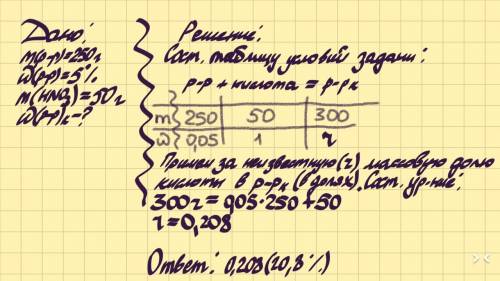 Дано:
m(р-р)=250г
ω(р-р)=5%
m(HNO₃)=50г
ω(р-р)к-?
Решение:
Сост. таблицу условий задачи:
р-р + кислота = р-рк
m 250 50 300
ω 0,05 1 r
Примем за неизвестную (r) массовую долю
кислоты в р-рк (в долях). Сост. ур-ние:
300r = 0,05·250+50
r=0,208
Ответ: 0,208(20,8%)